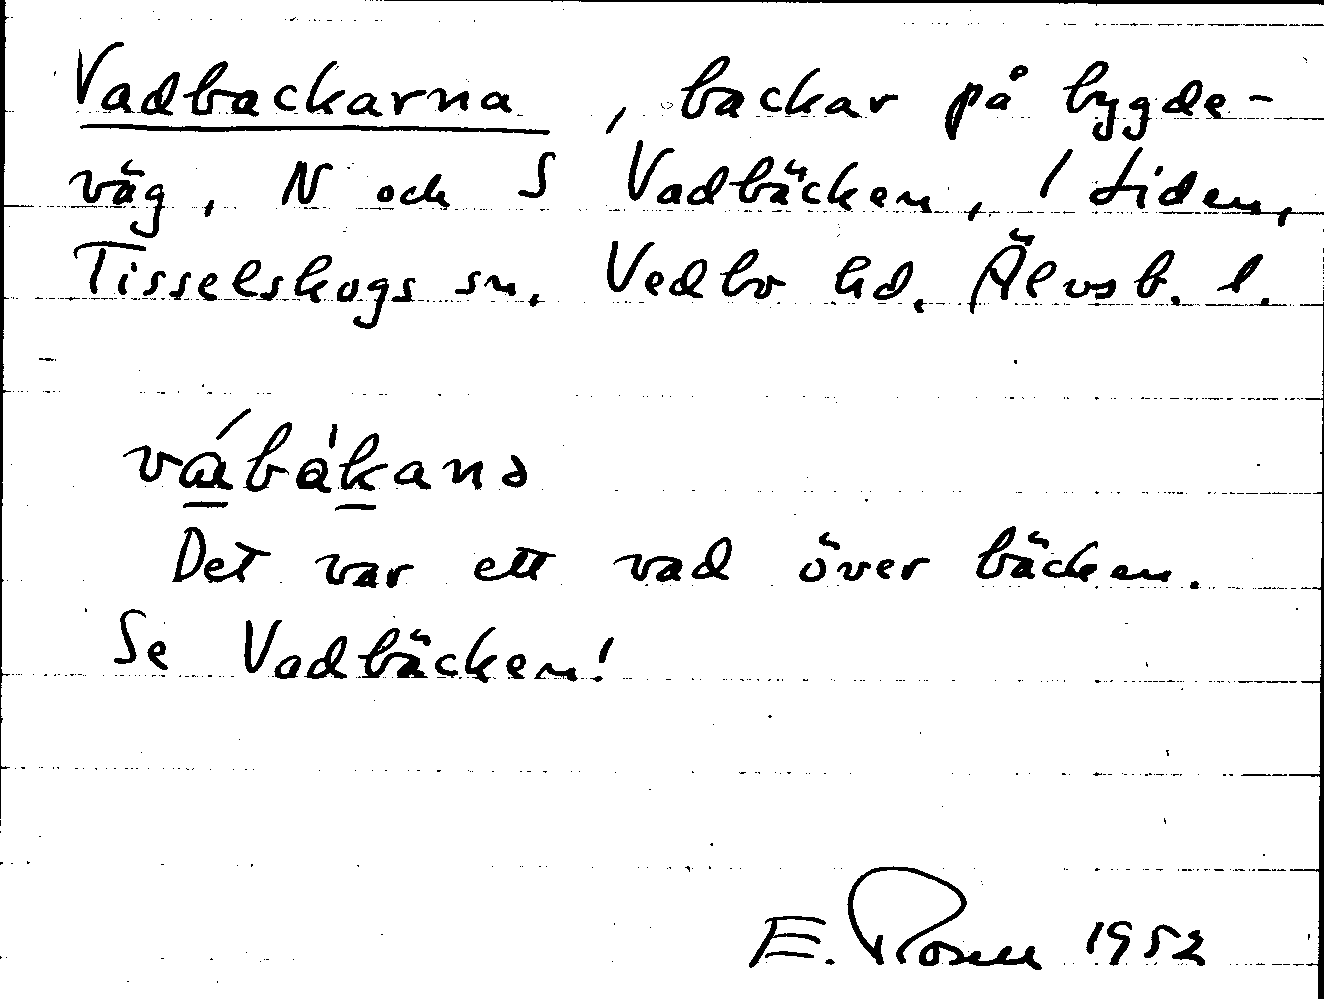 Vadbackarna, backar på bygde-
väg, N och S Vadbäcken, 1 Liden,
Tisselskogs sn. Vedbo hd. Älvsb. l.
vábàkanə
Det var ett vad över bäcken.
Se Vadbäcken!
E. Rosell 1952